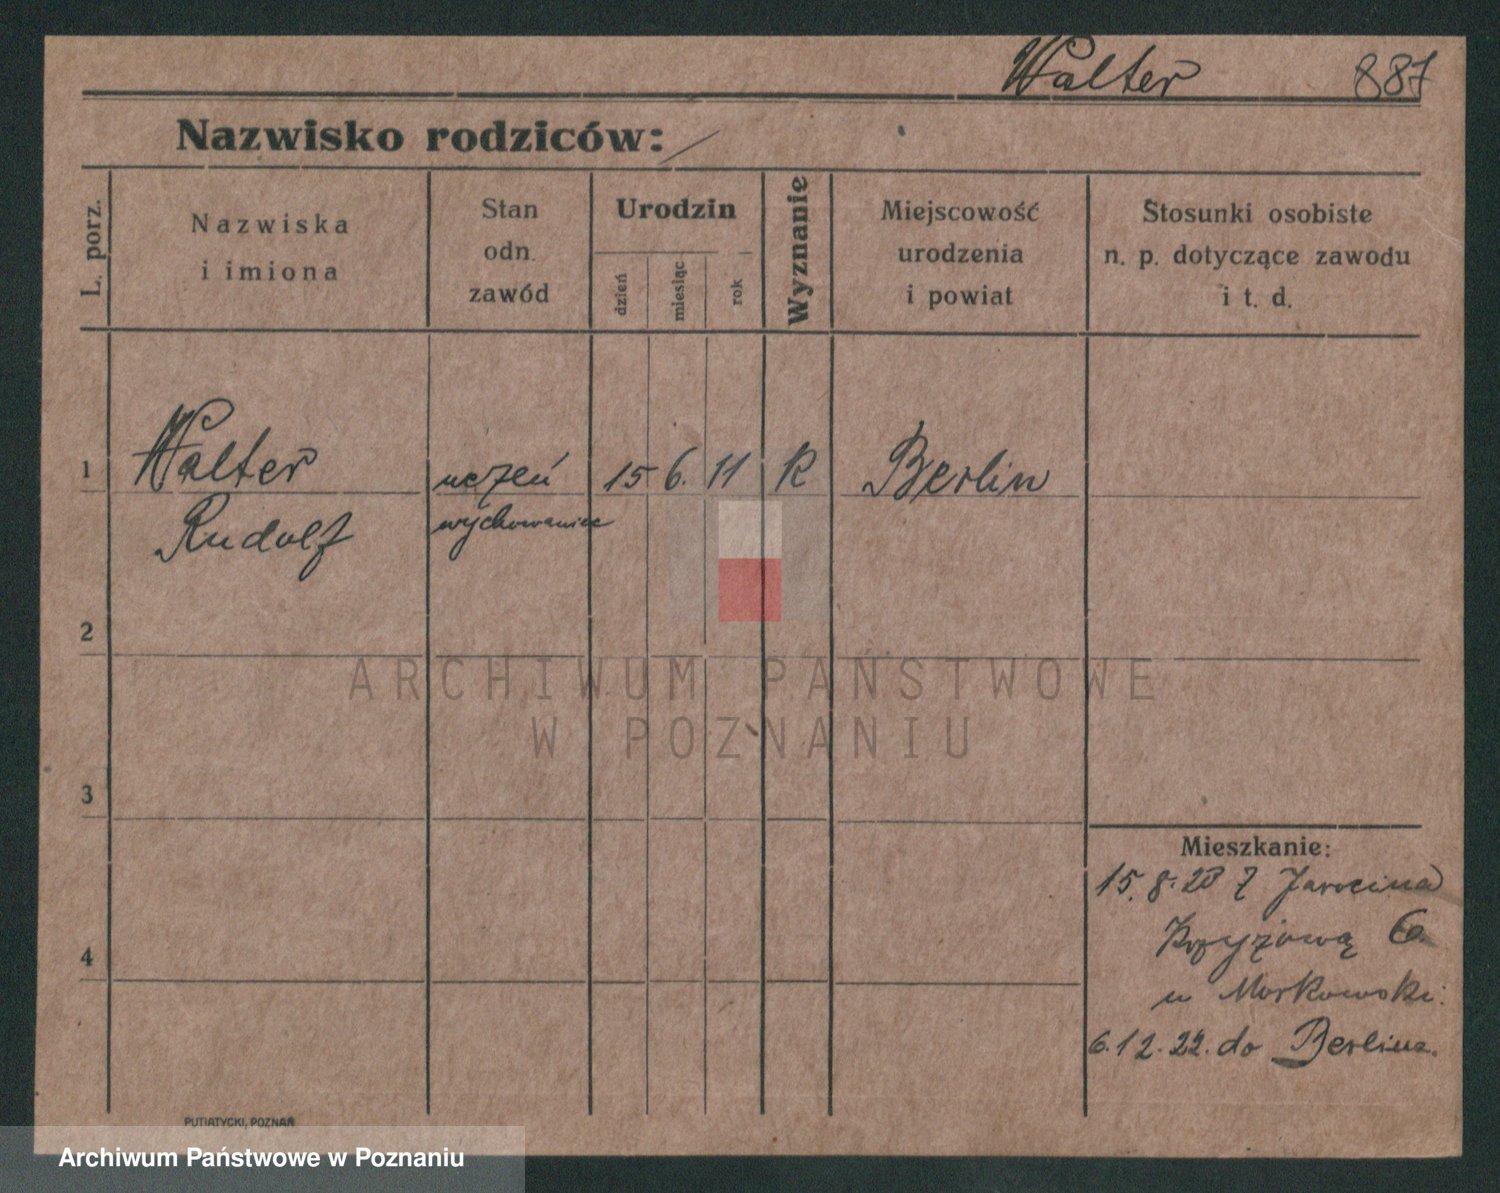 Walter 887
Nazwisko rodziców: /
L. porz.
Nazwiska
i imiona
Stan
odn.
zawód
Urodzin
dzień
miesiąc
rok
Wyznanie
Miejscowość
urodzenia
i powiat
Stosunki osobiste
n. p. dotyczące zawodu
i t. d.
1 Walter uczeń 15 6. 11 K Berlin
Rudolf wychowaniec
2
3
4
Mieszkanie:
15. 8. 20 z Jarocina
Krzyżowa 6.
u Markowski:
6.12.22. do Berlina.
PUTIATYCKI, POZNAŃ
ARCHIWUM PAŃSTWOWE
W POZNANIU
Archiwum Państwowe w Poznaniu